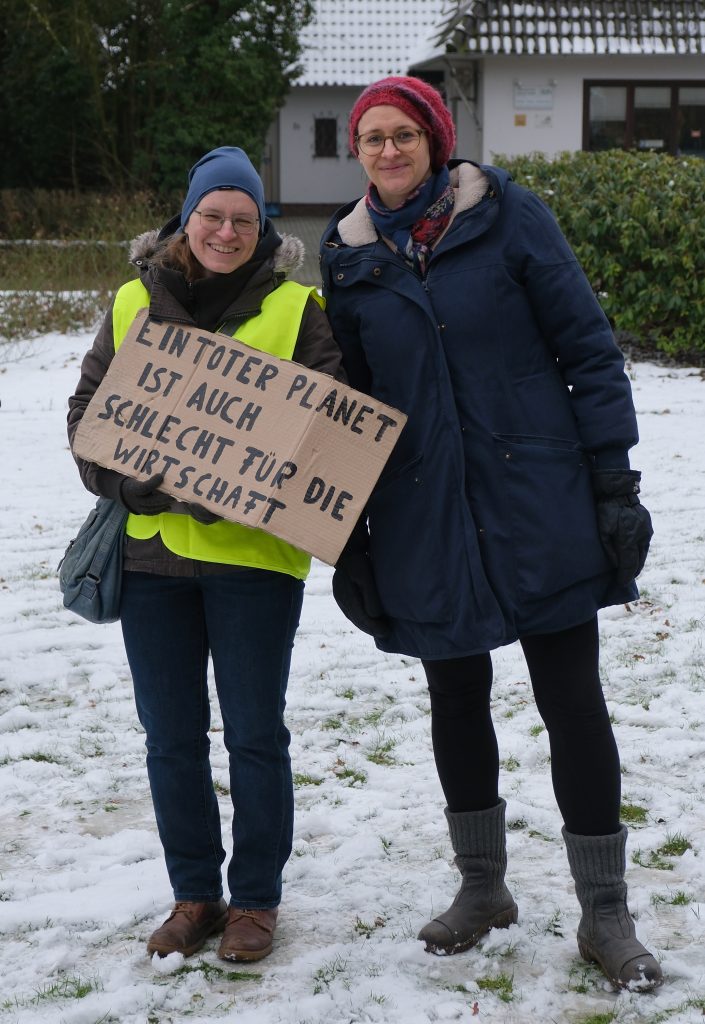 EIN TOTER PLANET
IST AUCH
SCHLECHT FÜR DIE
WIRTSCHAFT